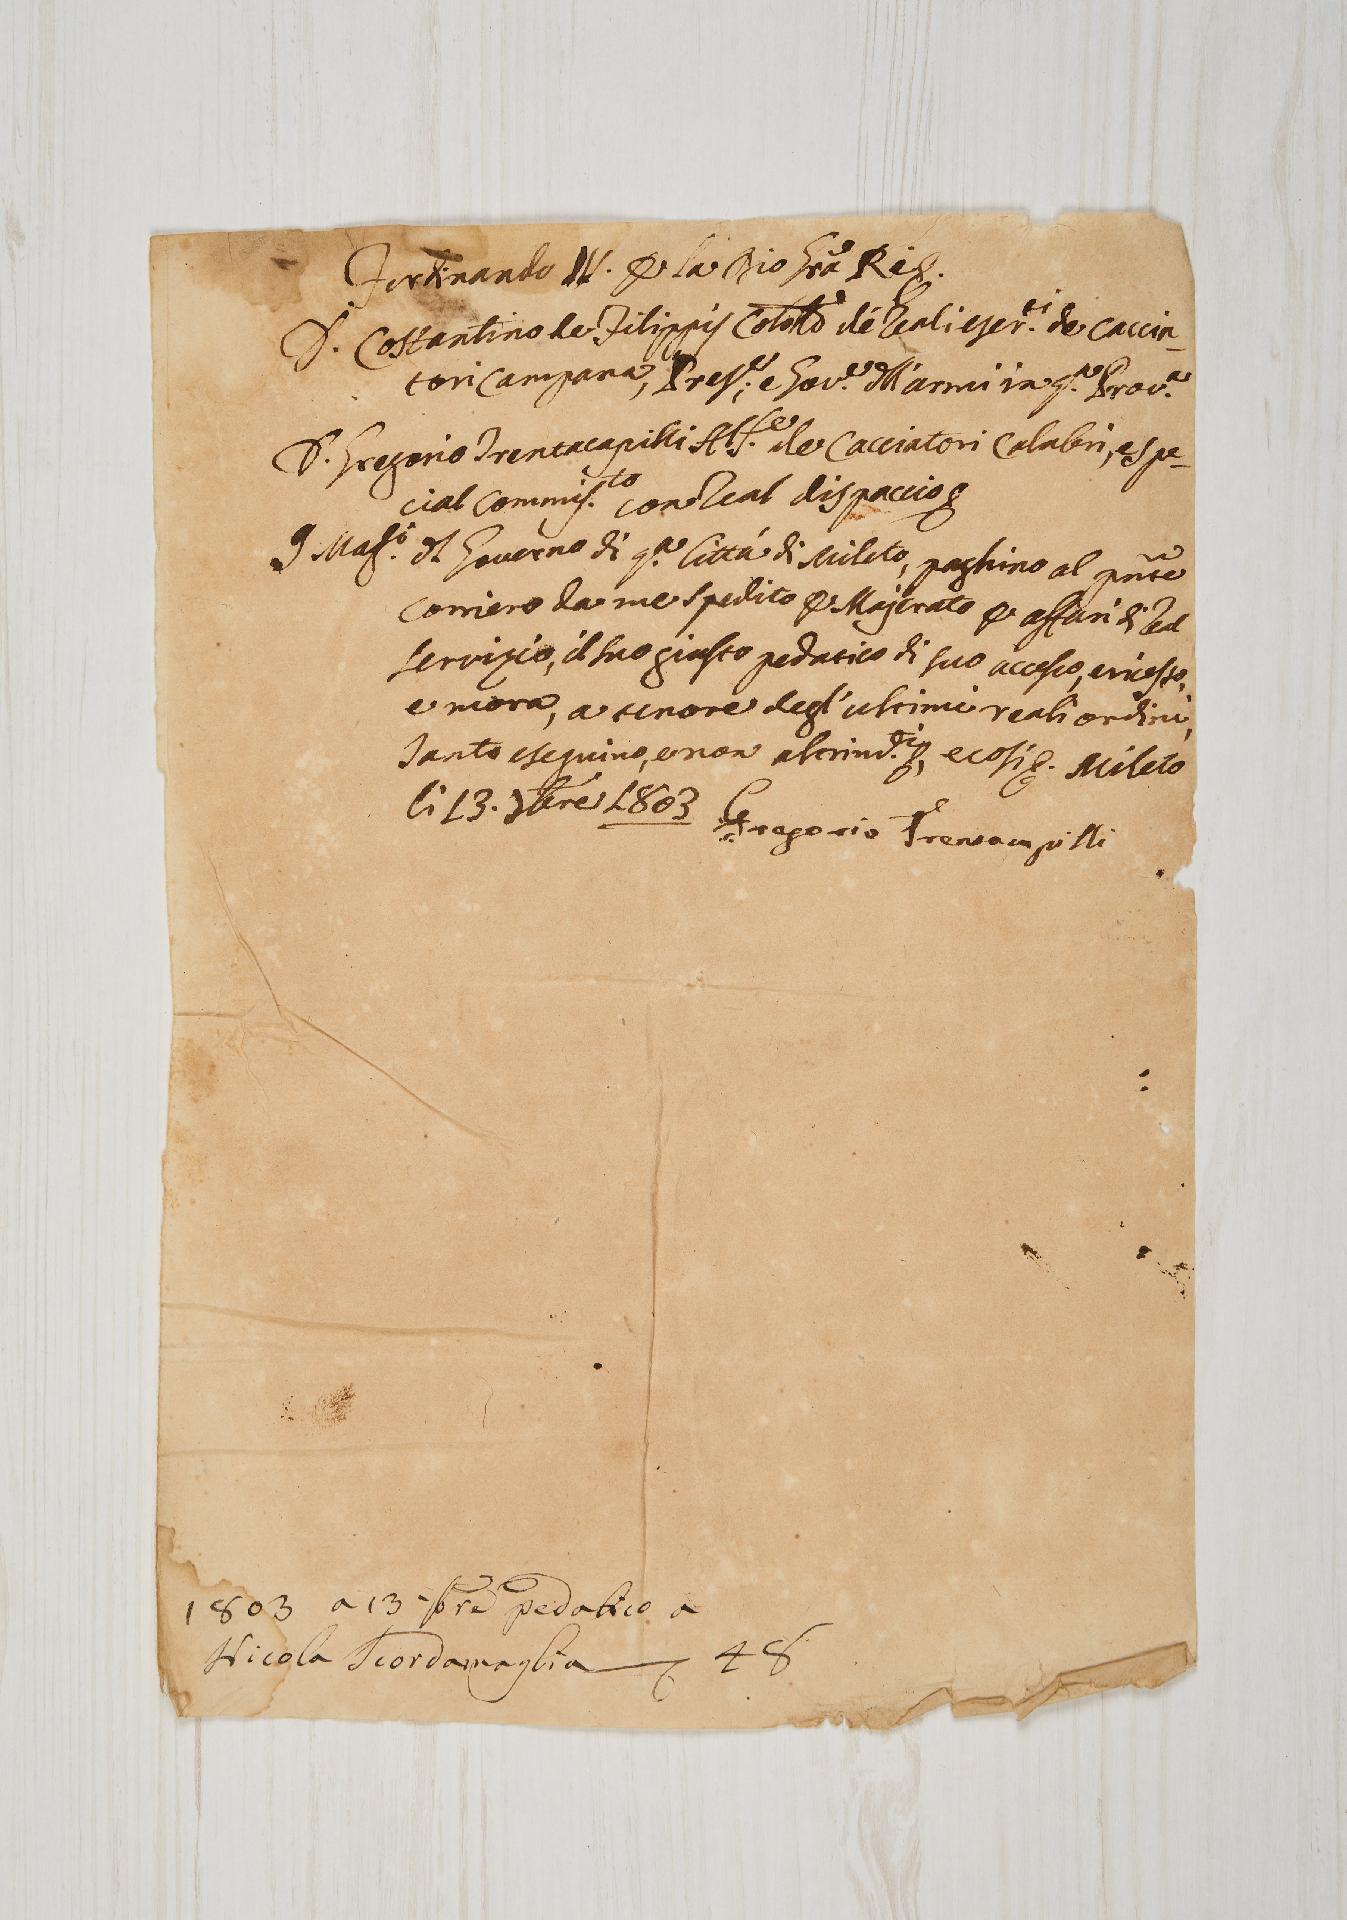 Ferdinando IV. per la Dio Gra Re &.
D. Costantino de Filippis Colo de Reali eser.ti de Caccia-
tori Campana, Pres.e, e Gov.e dll'armi in q.a Prov.a
D. Gregorio Trentacapilli Alf.e de Cacciatori Calabri, e spe-
cial Commis.to con Real dispaccio &
I Mag.ci dl Governo di q.a Città di Mileto, paghino al pnte
corriero da me spedito per Majerato per affari di Real
servizio, il suo giusto pedatico di suo accesso, e ricesso,
e mora, a tenore degl'ultimi reali ordini,
Tanto eseguino, e non altrim.ti &, e così &. Mileto
li 13. 7bre 1803 Gregorio Trentacapilli
1803 a 13 7bre pedatico a
Nicola Scordamaglia 48